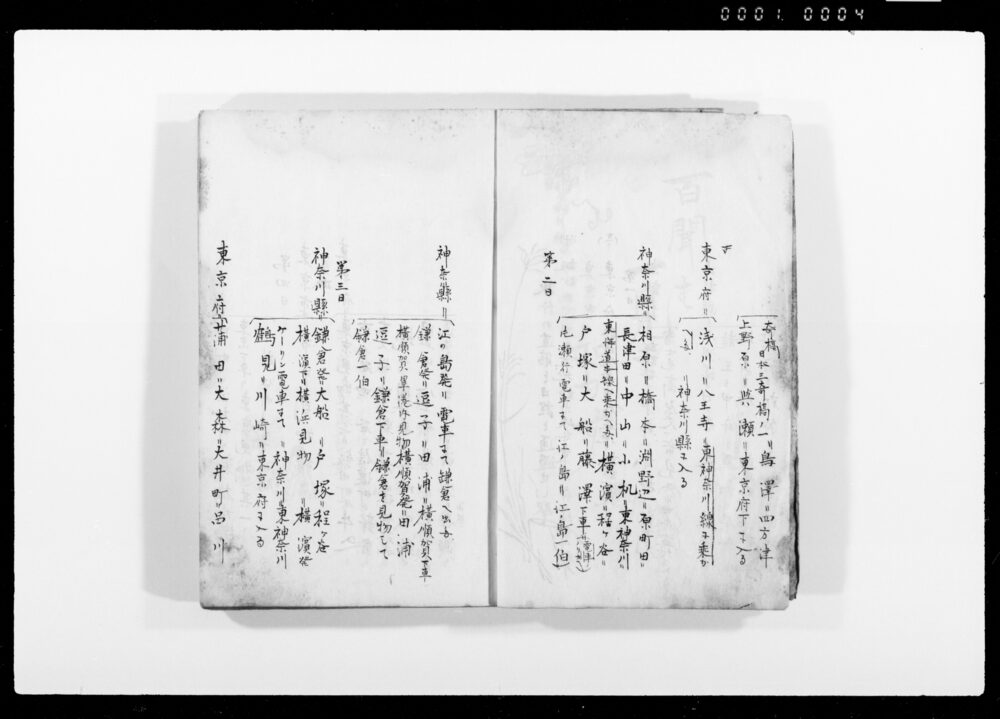 0001 0004
奇橋
日本三奇橋ノ一〃鳥澤〃四方津
上野原〃與瀬〃東京府下ニ入る
東京府〃
浅川〃八王寺〃東神奈川線ニ乘か
〃神奈川縣ニ入る
神奈川縣〃
相原〃橋本〃淵野辺〃原町田〃
長津田〃中山〃小机〃東神奈川〃
東海道本線へ乘かへ〃横濱〃程ヶ谷〃
戸塚〃大船〃藤澤下車〃
片瀬行電車ニて江ノ島〃江ノ島一伯
第二日
神奈川縣〃
江の島発〃電車ニて鎌倉へ出る
鎌倉発〃逗子〃田浦〃横順賀下車
横順賀軍港内見物横順賀発〃田浦
逗子〃鎌倉下車〃鎌倉を見物して
鎌倉一伯
第三日
神奈川縣〃
鎌倉発〃大船〃戸塚〃程ヶ谷
横濱下車〃横浜見物〃横濱発
ケーリン電車ニて〃神奈川〃東神奈川
鶴見〃川崎〃東京府ニ入る
東京府〃蒲田〃大森〃大井町〃品川